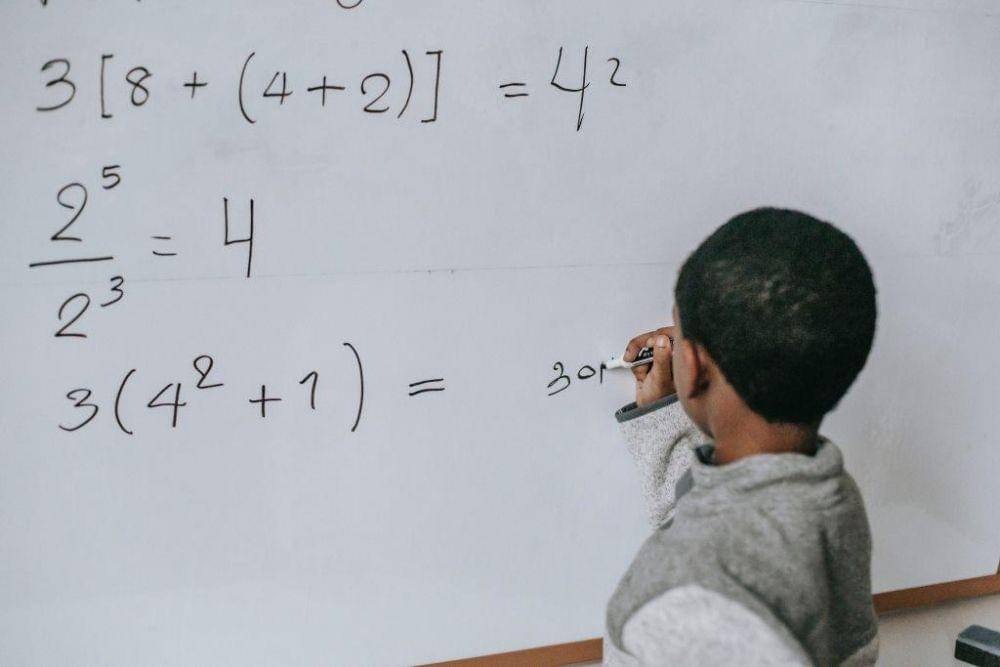 3[8 + (4+2)] = 42
2⁵/2³ = 4
3(4² + 1) = 30